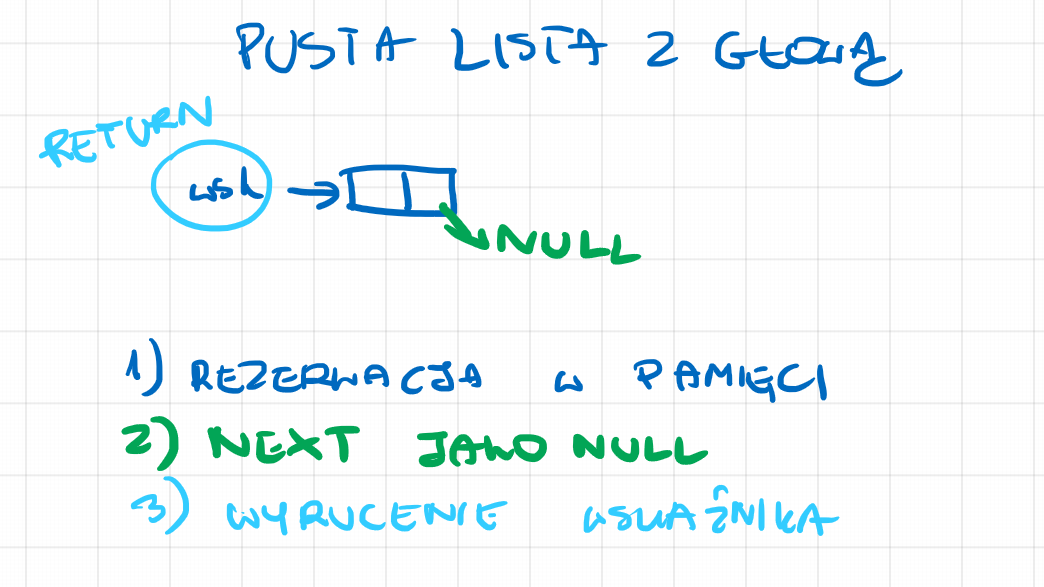 PUSTA LISTA Z GŁOWĄ
RETURN
wsk
NULL
1) REZERWACJA W PAMIĘCI
2) NEXT JAKO NULL
3) WYRUCENIE WSKAŹNIKA